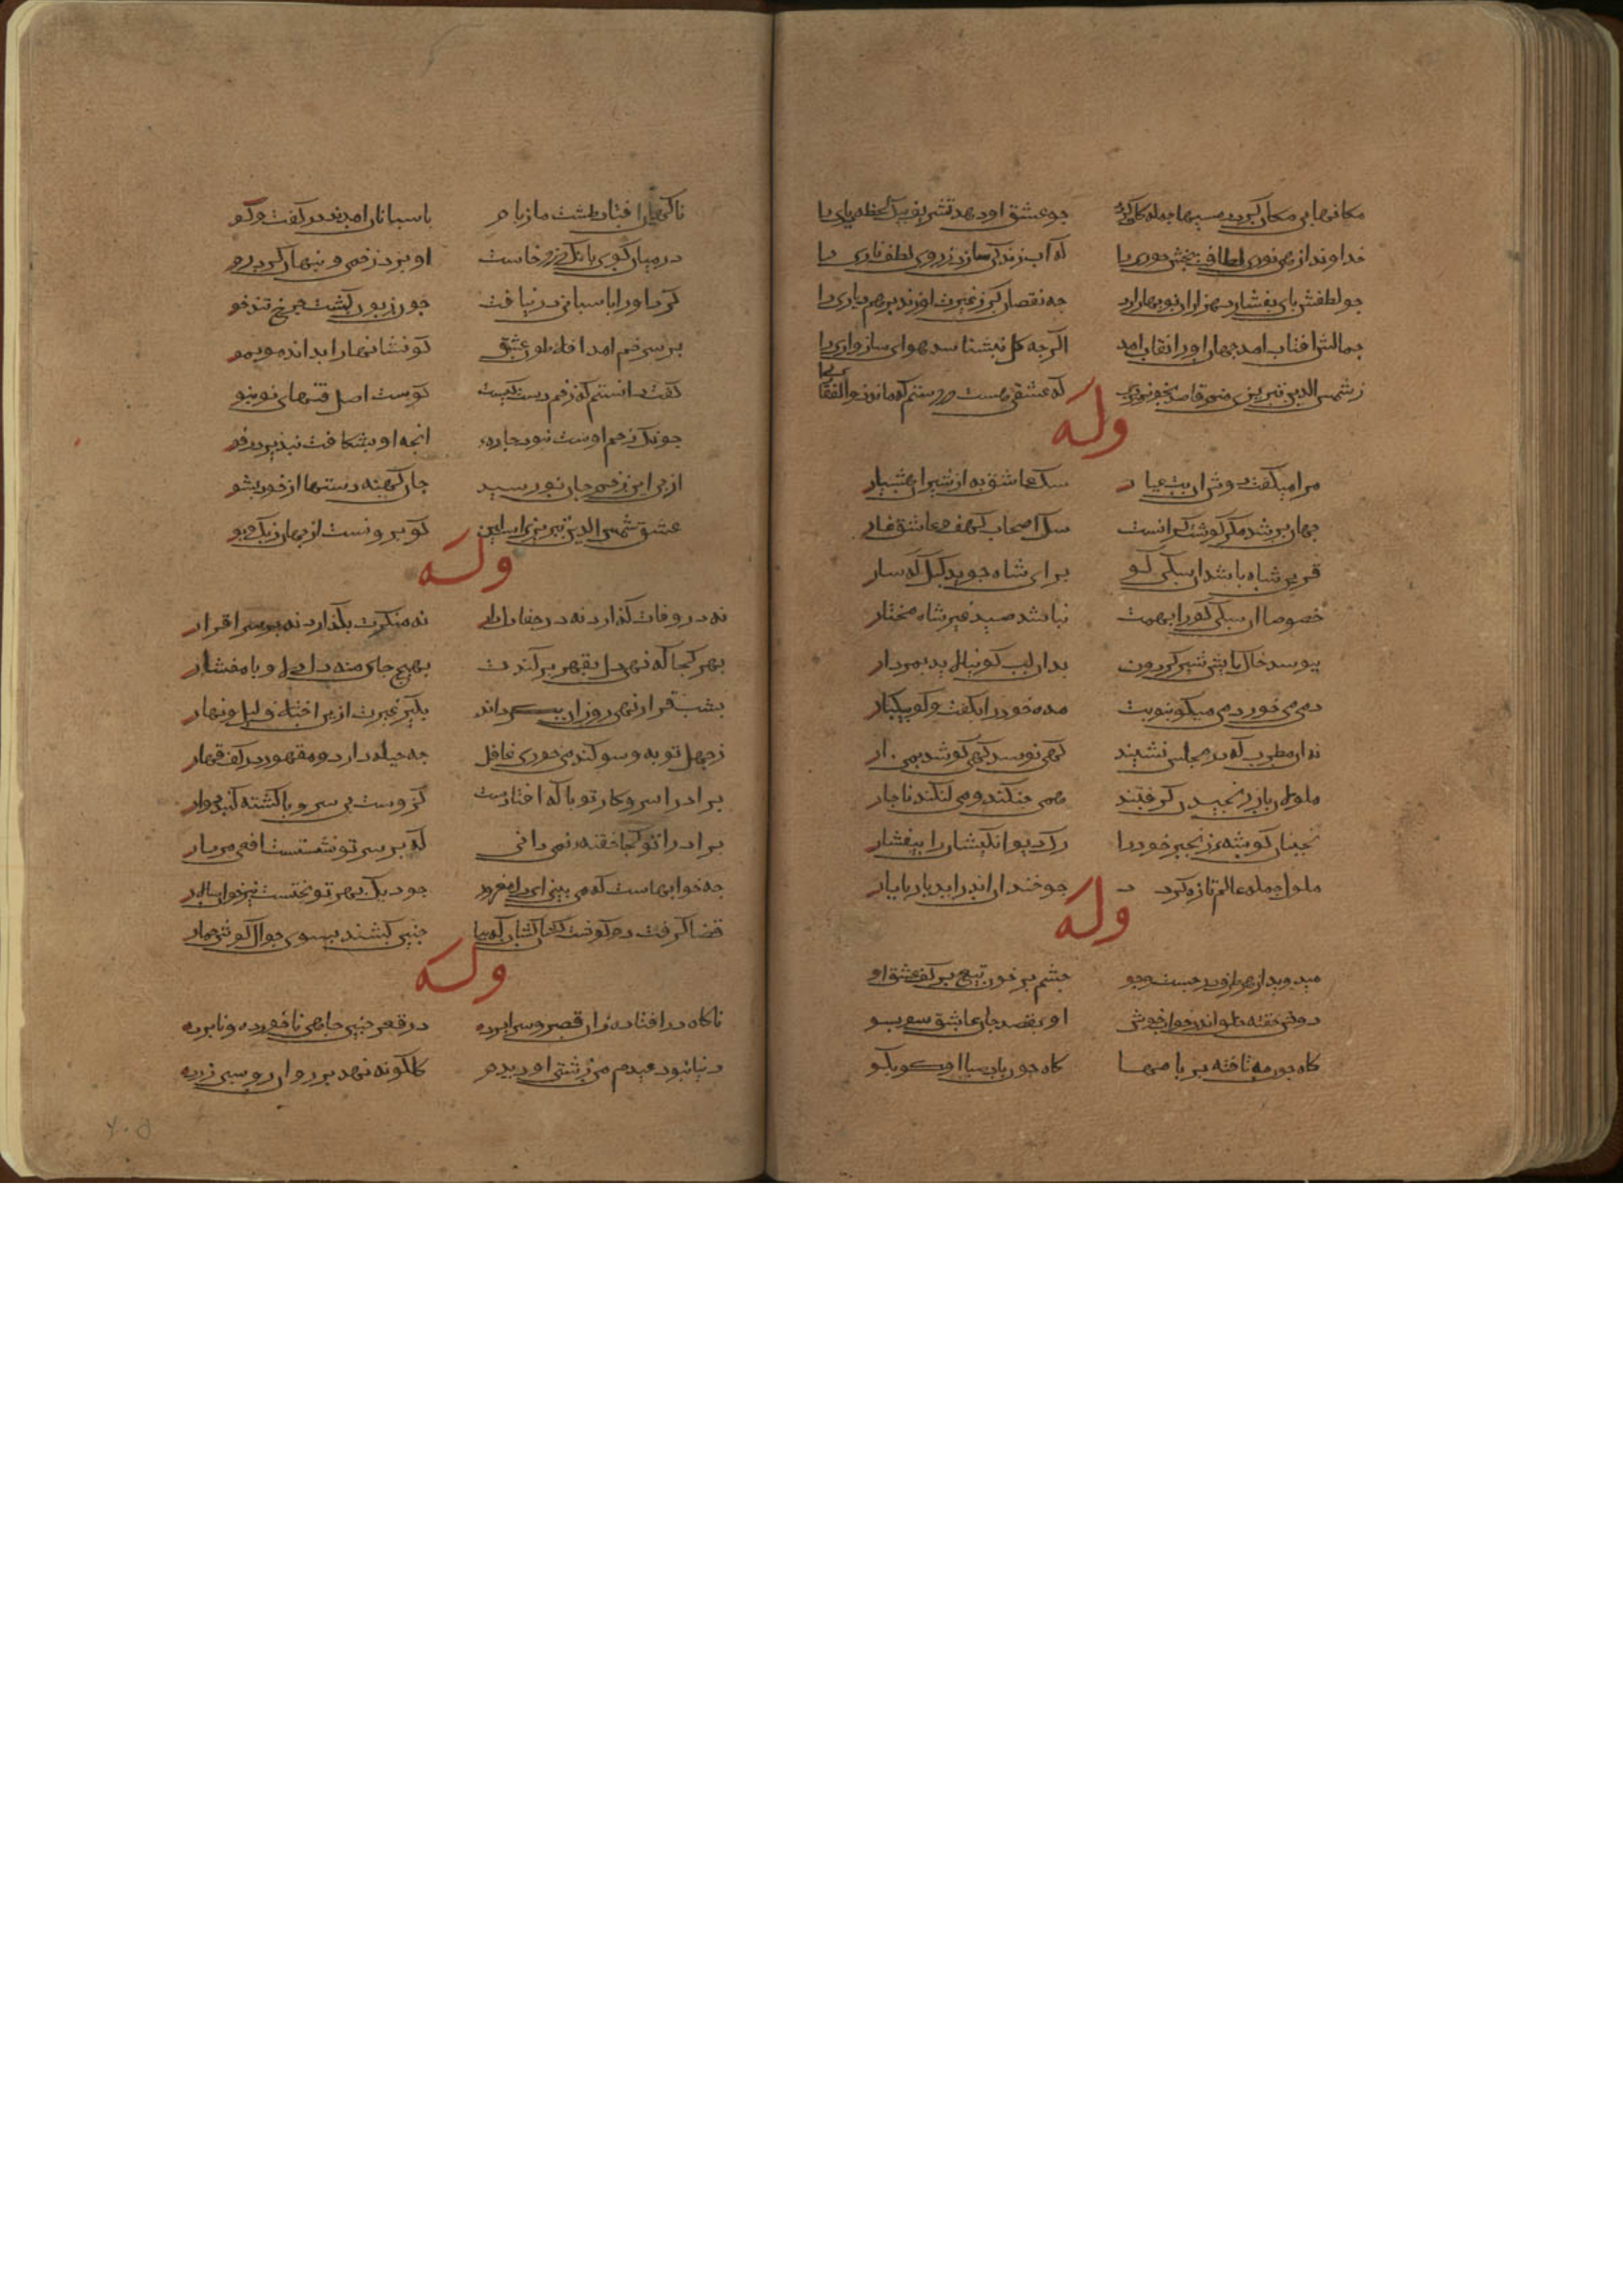 مکانهابی مکان کردد مسیرها جمله کان کردد جو عشق او دهد تشریف یک لحظه دیاری را
خداوندا زهی نوری لطافت بخش حوری را که آب زندگی سازد ز روی لطف ناری را
جو لطفش بای بفشارد هزاران نوبهار ارد جه نقصان کر ز غیرت او زند برهم بهاری را
جمالش افتاب امد جهان او را نقاب امد اکرجه کل بنشناسد هوای سازواری را
ز شمس الدین تبریزی که عشقی هست در دستم که ماند ذوالفقاری را
وله
مرا میکفت دوش آن یار عیار سک عاشق به از شیران هشیار
جهان پر شد مکر کوشت کرانست سک اصحاب کهف و عاشق غار
قرین شاه باشد ان سکی کو برای شاه جوید کبک و کهسار
خصوصا ان سکی کو را بهمت نباشد صید غیر شاه مختار
ببوسد خاک بایش شیر کردون بدان لب کو نیالاید بمردار
دمی می خور دمی میکو بنوبت مده خود را بکفت و کو بیکبار
نه ان مطرب که در مجلس نشیند کهی نوشد کهی کوشد بمزمار
ملولان باز جنبیدن کرفتند همی جنکند و می لنکند ناجار
بجنبان کوشه زنجیر خود را رک دیوانکیشان را بیفشار
ملول جمله عالم تازه کردد جو خندان اندر اید یار بی یار
وله
میدوید از هر طرف در جست و جو جشم بر خون تیغ بر کف عشق او
دوش خفته خلق اندر خواب خوش او بقصد جان عاشق سو بسو
کاه جون مه تافته بر بامها کاه جون باد صبا او کو بکو
ناکهان افتاد طشت ما ز بام باسبانان امدند در کفت و کو
در میان کوی بانک دزد خاست او بزد زخمی و بنهان کرد رو
کرد او را باسبانی در نیافت جون زبون کشت جرخ تندخو
بر سر زخم امد افلاطون عشق کو نشانها را بداند مو بمو
کفت دانستم که زخم دست کیست کو ست اصل فتنهای نو بنو
جونک زخم اوست نبود جاره انجه او بشکافت نبذیرد رفو
از بی این زخم جان نو رسید جان کهنه دستها از خو بشو
عشق شمس الدین تبریزی است این کو برونست از جهان رنک و بو
وله
نه در وفات کذارد نه در جفا دلدار نه منکرت بکذارد نه بر سر اقرار
بهر کجا که نهی دل بقهر بر کندت بهیج جای منه دل دلا و با مفشار
بشب قرار نهی روز ان بکرداند بکیر عبرت ازین اختلاف لیل و نهار
ز جهل توبه و سوکند می خوری غافل جه حیله دارد مقهور در کف قهار
برادرا سر و کار تو با که افتادست کز وست بی سر و با کشته کنبد دوار
برادرا تو کجا خفته نمی دانی که بر سر تو نشستست افعی بیدار
جه خوابهاست که می بینی ای دل مغرور جه دیک بهر تو بختست بیر خوان سالار
قضا کرفت دو کوشت کشان کشان که بیا جنین کشند بسوی جوال کوش حمار
وله
ناکاه در افتادم زان قصر و سرابرده در قعر جنین جاهی ناخورده و نابرده
دنیا نبود عیدم من زشتی او دیدم کلکونه نهد بر رو ان روسبی زرده